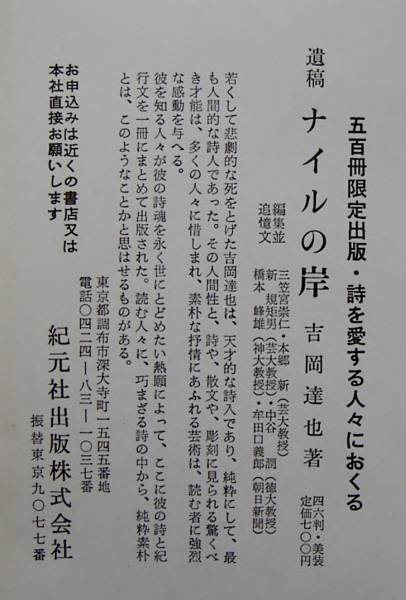 五百冊限定出版・詩を愛する人々におくる
遺稿 ナイルの岸 吉岡達也著
四六判・美装
定価七〇〇円
編集並
追憶文
三笠宮崇仁・本郷 新(芸大教授)
新 規矩男(芸大教授)・中谷 潤(徳大教授)
橋本 峰雄(神大教授)・牟田口義郎(朝日新聞)
若くして悲劇的な死をとげた吉岡達也は、天才的な詩人であり、純粋にして、最
も人間的な詩人であった。その人間性と、詩や、散文や、彫刻に見られる驚くべ
き才能は、多くの人々に惜しまれ、素朴な抒情にあふれる芸術は、読む者に強烈
な感動を与へる。
彼を知る人々が彼の詩魂を永く世にとどめたい熱願によって、ここに彼の詩と紀
行文を一冊にまとめて出版された。読む人々に、巧まざる詩の中から、純粋素朴
とは、このようなことかと思はせるものがある。
お申込みは近くの書店又は
本社直接お願いします
東京都調布市深大寺町一五四五番地
電話〇四二四―八三―一〇三七番
紀元社出版株式会社
振替東京九〇七七番